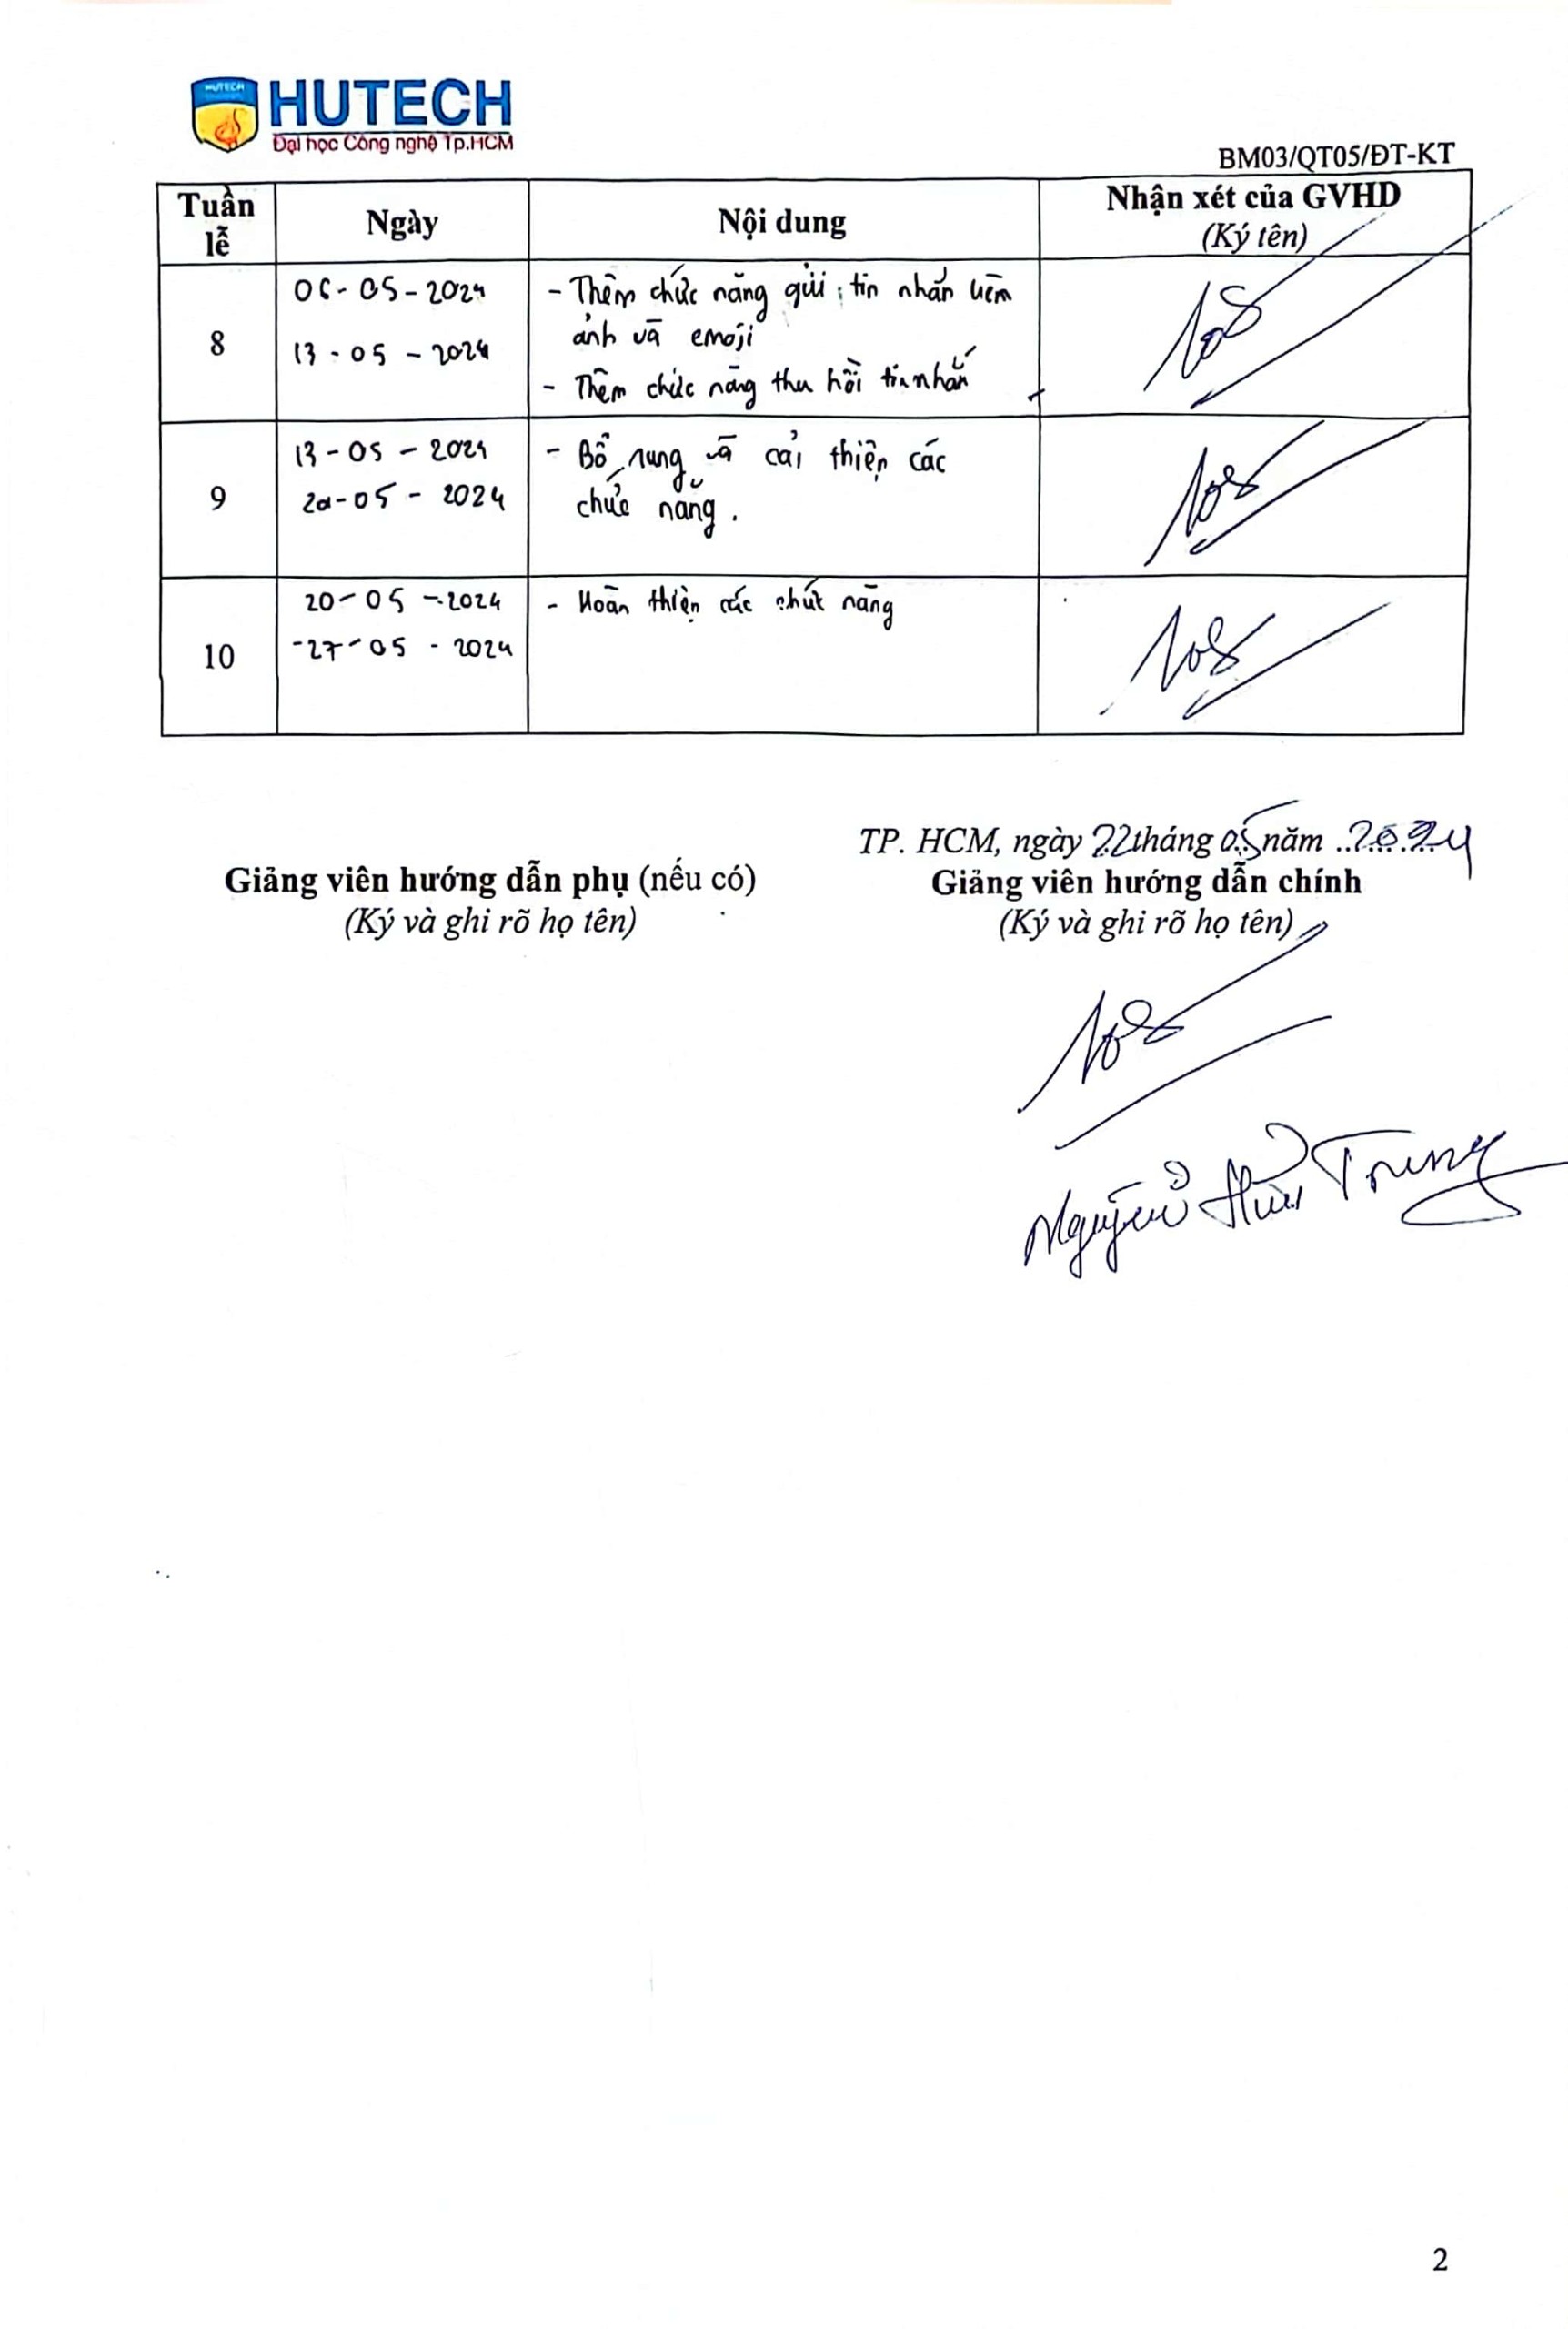 HUTECH
HUTECH
Đại học Công nghệ Tp.HCM
BM03/QT05/ĐT-KT
Tuần lễ
Ngày
Nội dung
Nhận xét của GVHD
(Ký tên)
8
06-05-2024
13-05-2024
- Thêm chức năng gửi tin nhắn kèm
ảnh và emoji
- Thêm chức năng thu hồi tin nhắn
9
13-05-2024
20-05-2024
- Bổ sung và cải thiện các
chức năng.
10
20-05-2024
-27-05-2024
- Hoàn thiện các chức năng
TP. HCM, ngày 22 tháng 05 năm 2024
Giảng viên hướng dẫn phụ (nếu có)
(Ký và ghi rõ họ tên)
Giảng viên hướng dẫn chính
(Ký và ghi rõ họ tên)
Nguyễn Hữu Trung
2